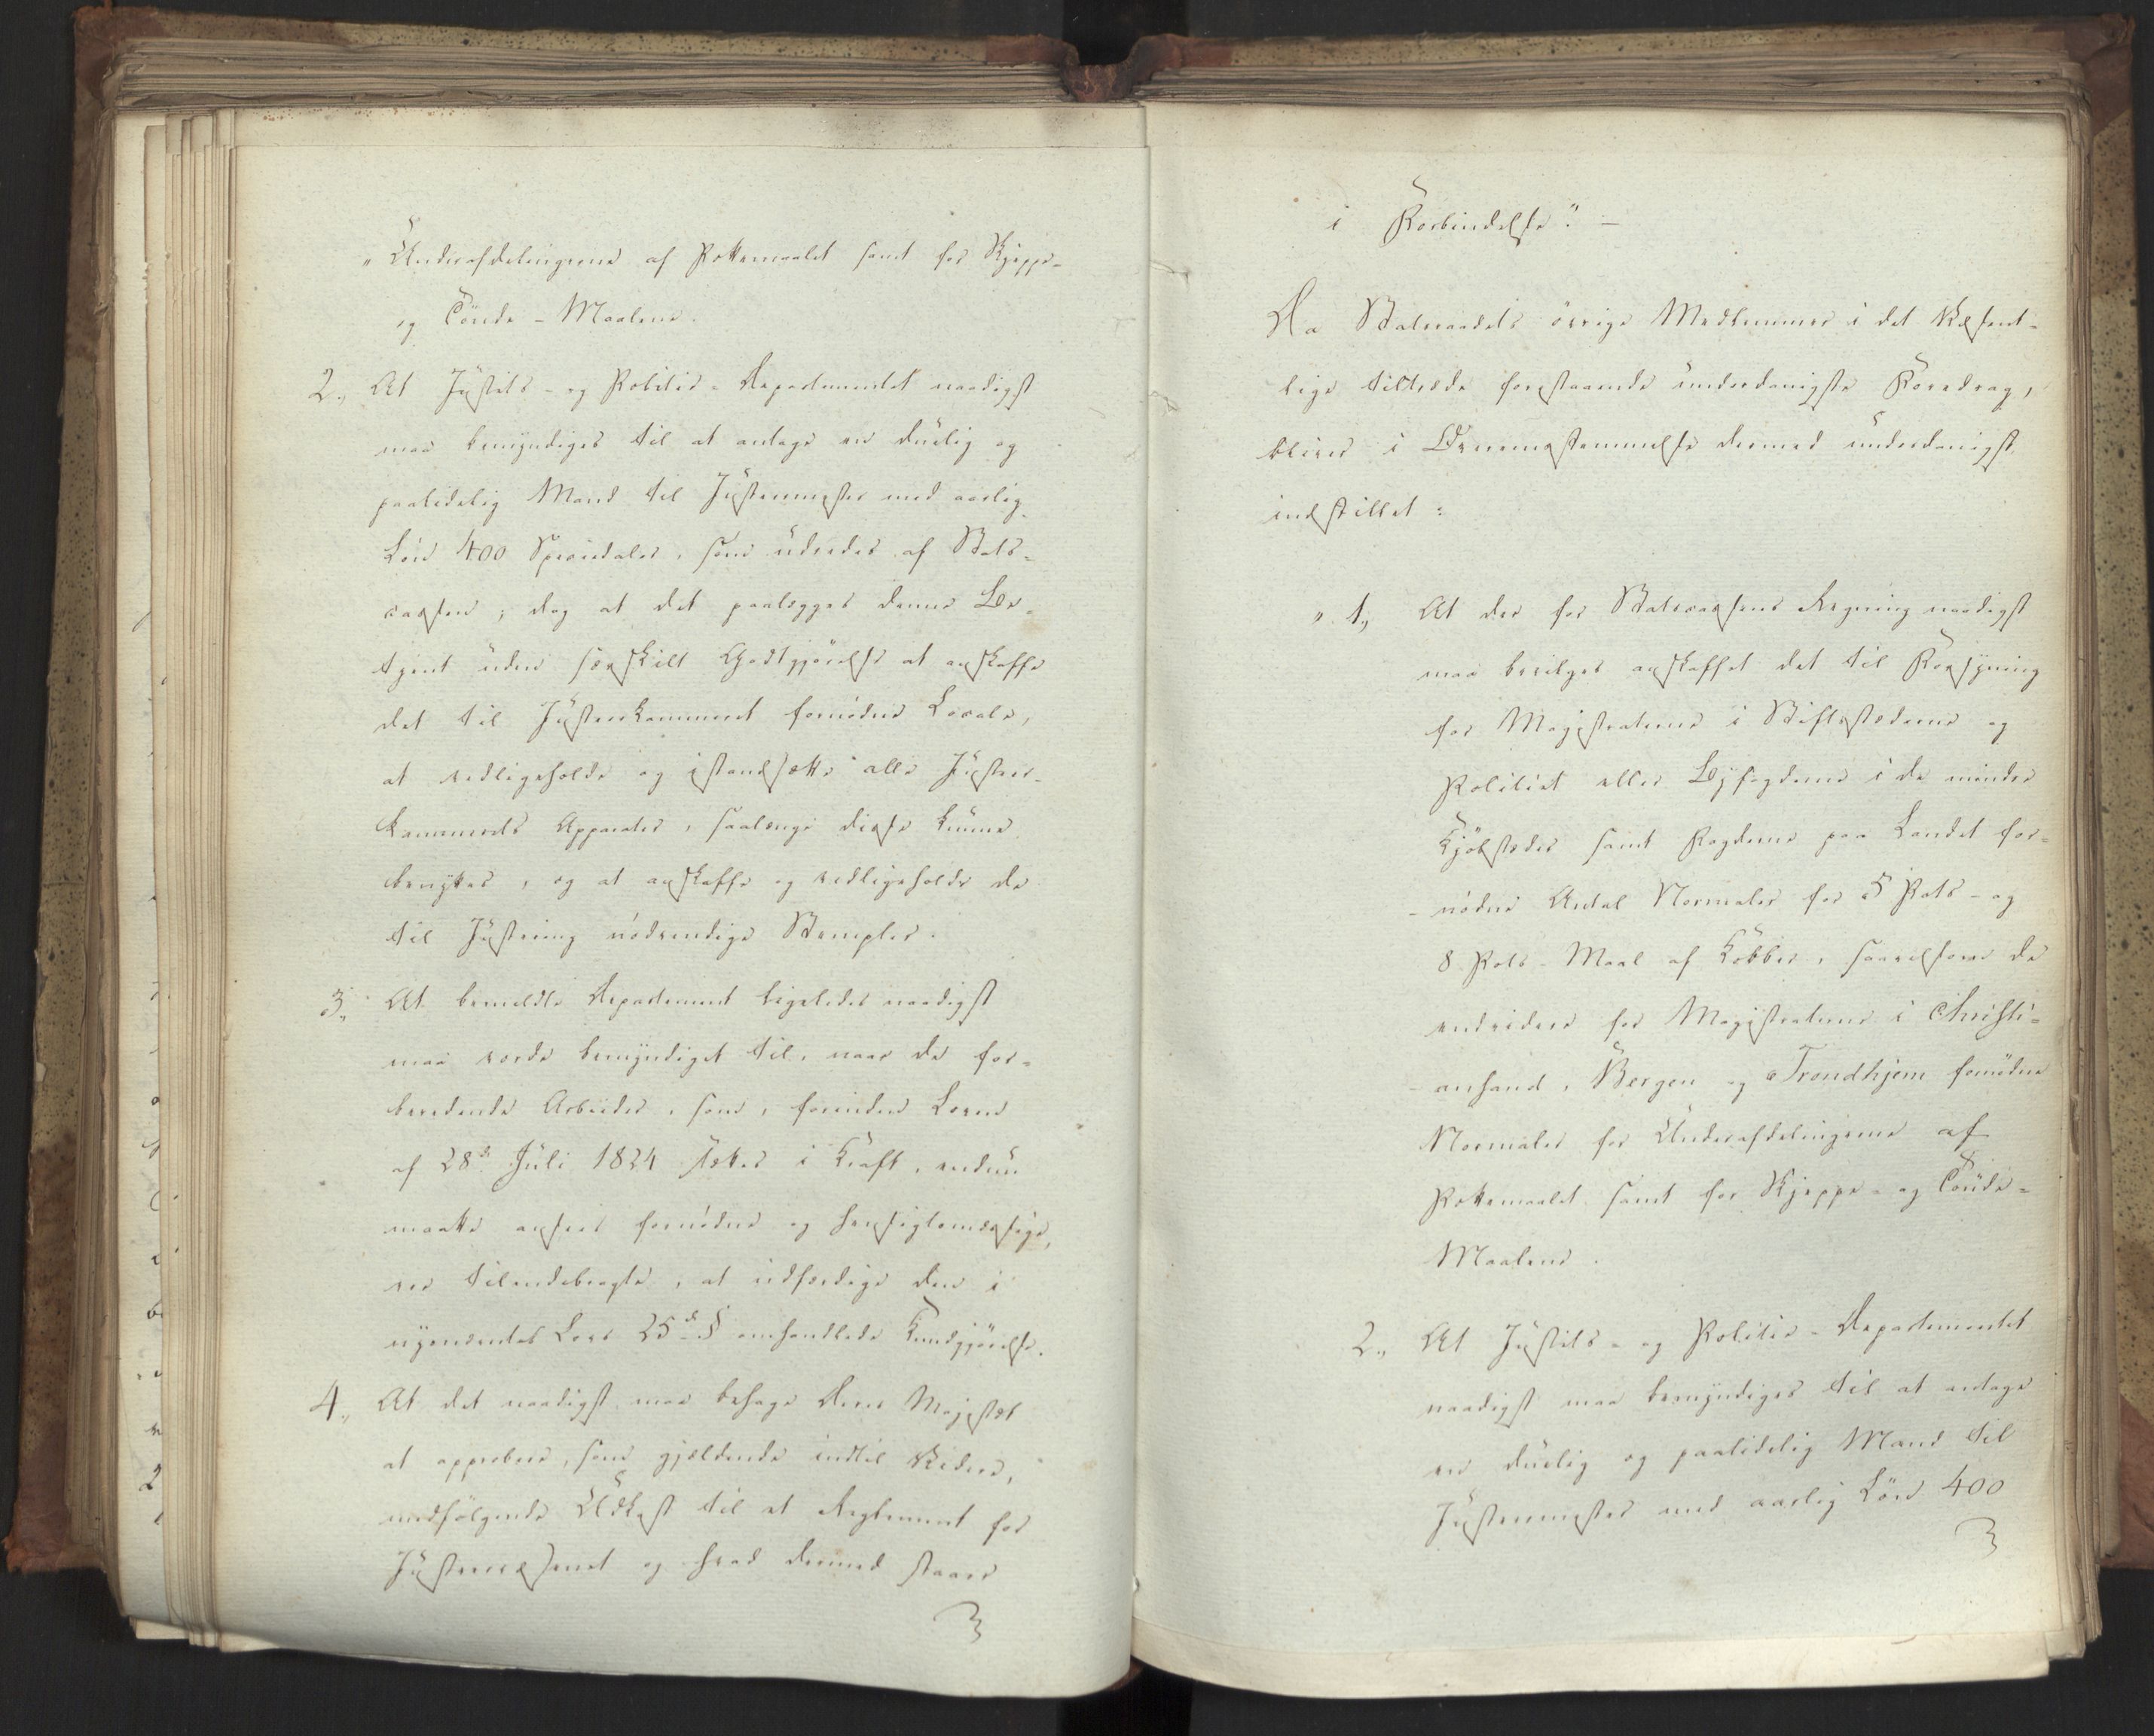 „Underafdelingerne af Pottemaalet samt for Skjeppe-
og Tønde-Maalene.
2., At Justits- og Politie-Departementet naadigst
maa bemyndiges til at antage en duelig og
paalidelig Mand til Justeermester med aarlig
Løn 400 Speciedaler, som udredes af Stats-
cassen; dog at det paalægges denne Be-
tjent uden særskilt Godtgjörelse at anskaffe
det til Justeerkammeret fornødne Locale,
at vedligeholde og istandsætte alle Justeer-
kammerets Apparater, saalænge disse kunne
benyttes, og at anskaffe og vedligeholde de
til Justering nødvendige Stempler.
3., At bemeldte Departement ligeledes naadigst
maa vorde bemyndiget til, naar de for-
beredende Arbeider, som, forinden Loven
af 28de Juli 1824 sættes i Kraft, endnu
maatte ansees fornødne og hensigtsmæssige,
ere tilendebragte, at udfærdige den i
nysnævnte Lovs 25de § omhandlede Kundgjörelse.
4., At det naadigst maa behage Deres Majestæt
at approbere, som gjældende indtil Videre,
medfølgende Udkast til et Reglement for
Justeervæsenet og hvad dermed staaer
i Forbindelse“. –
Da Statsraadets övrige Medlemmer i det Væsent-
lige tiltræde forestaaende underdanigste Foredrag,
bliver i Overeensstemmelse dermed underdanigst
indstillet:
„1., At der for Statscassens Regning naadigst
maa bevilges anskaffet det til Forsyning
for Magistraterne i Stiftsstæderne og
Politiet eller Byfogderne i de mindre
Kjøbstæder samt Fogderne paa Landet for-
nødne Antal Normaler for 5 Pots- og
8 Pots-Maal af Kobber, saavelsom de
endvidere for Magistraterne i Christi-
ansand, Bergen og Trondhjem fornødne
Normaler for Underafdelingerne af
Pottemaalet samt for Skjeppe- og Tønde-
Maalene.
2., At Justits- og Politie-Departementet
naadigst maa bemyndiges til at antage
en duelig og paalidelig Mand til
Justeermester med aarlig Løn 400